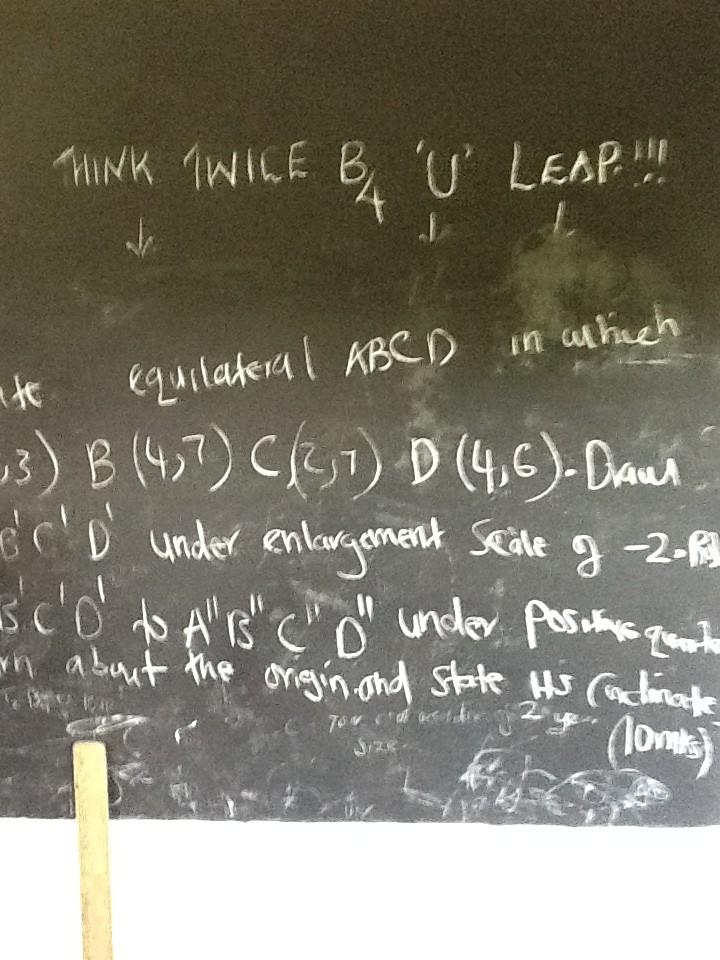 THINK TWICE B4 'U' LEAP!!!
equilateral ABCD in which
,3) B (4,7) C(2,7) D (4,6). Draw
B' C' D' under enlargement Scale of -2.
B' C' D' to A" B" C" D" under positive
about the origin and state its
2
(10mks)